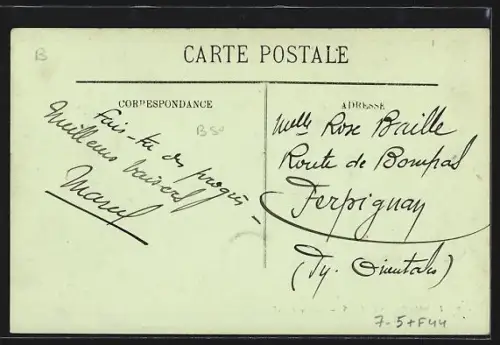 B
CARTE POSTALE
CORRESPONDANCE
B50
Fais-tu des progrès -
Meilleurs baisers
Marcel
ADRESSE
Melle Rose Baille
Route de Bompas
Perpignan
(Py. Orientales)
7-5+F44